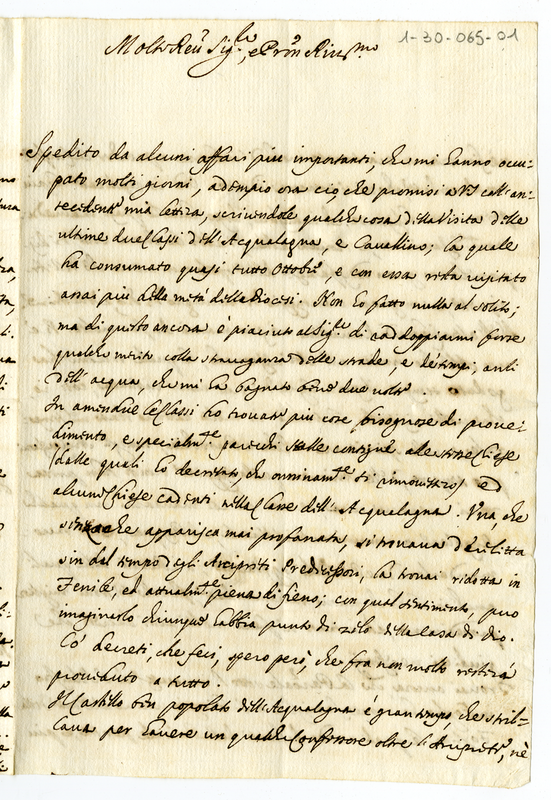 1-30-065-01
Molto Rev.do Sig.re, e Pron Riv.mo
Spedito da alcuni affari più importanti, che mi hanno occu-
pato molti giorni, adempio ora ciò, che promisi a VS coll' an-
tecedente mia lettera, scrivendole qualche cosa della Visita delle
ultime due Classi dell' Acqualagna, e Cavallino; la quale
ha consumato quasi tutto Ottobre, e con essa resta visitato
assai più della metà della Diocesi. Non ho fatto nulla al solito;
ma di questo ancora è piaciuto al Sig.re di raddoppiarmi forse
qualche merito colla stravaganza delle strade, e de' tempi, anli
dell' acqua, che mi ha bagnato bene due volte.
In amendue le Classi ho trovate più cose bisognose di prove-
dimento, e specialm.te parecchi stalle contigue alle stesse Chiese
(dalle quali ho decretato, che onninam.te si rimovessero) ed
alcune Chiese cadenti nella Classe dell' Acqualagna. Una, che
senza che apparisca mai profanata, si trovava derelitta
sin dal tempo degli Arcipreti Predecessori, la trovai ridotta in
Fenile, ed attualm.te piena di fieno; con qual sentimento, può
imaginarlo chiunque habbia punto di zelo della Casa di Dio.
Co' decreti, che feci, spero però, che fra non molto resterà
proveduto a tutto.
Il Castello ben popolato dell' Acqualagna è gran tempo che stril-
lava per havere un qualche Confessore oltre l' Arciprete, nè